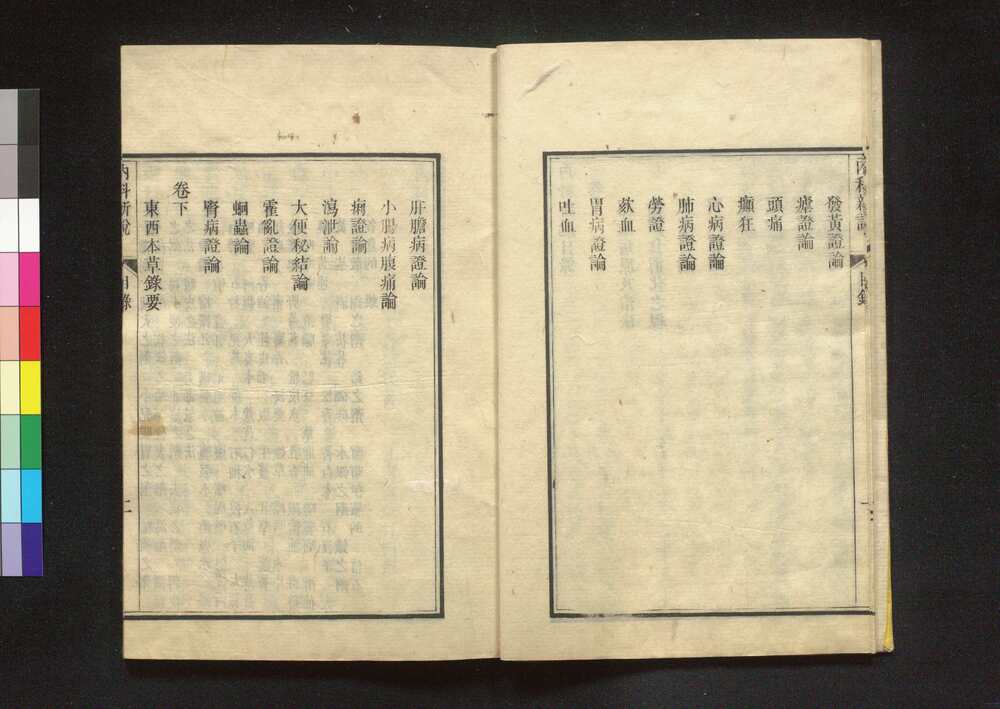 內科新說
目錄
發黃證論
瘧證論
頭痛
癲狂
心病證論
肺病證論
勞證
欬血
胃病證論
吐血
肝膽病證論
小腸病腹痛論
痢證論
瀉泄論
大便秘結論
霍亂證論
蛔蟲論
腎病證論
卷下
東西本草錄要
內科新說
目錄
二